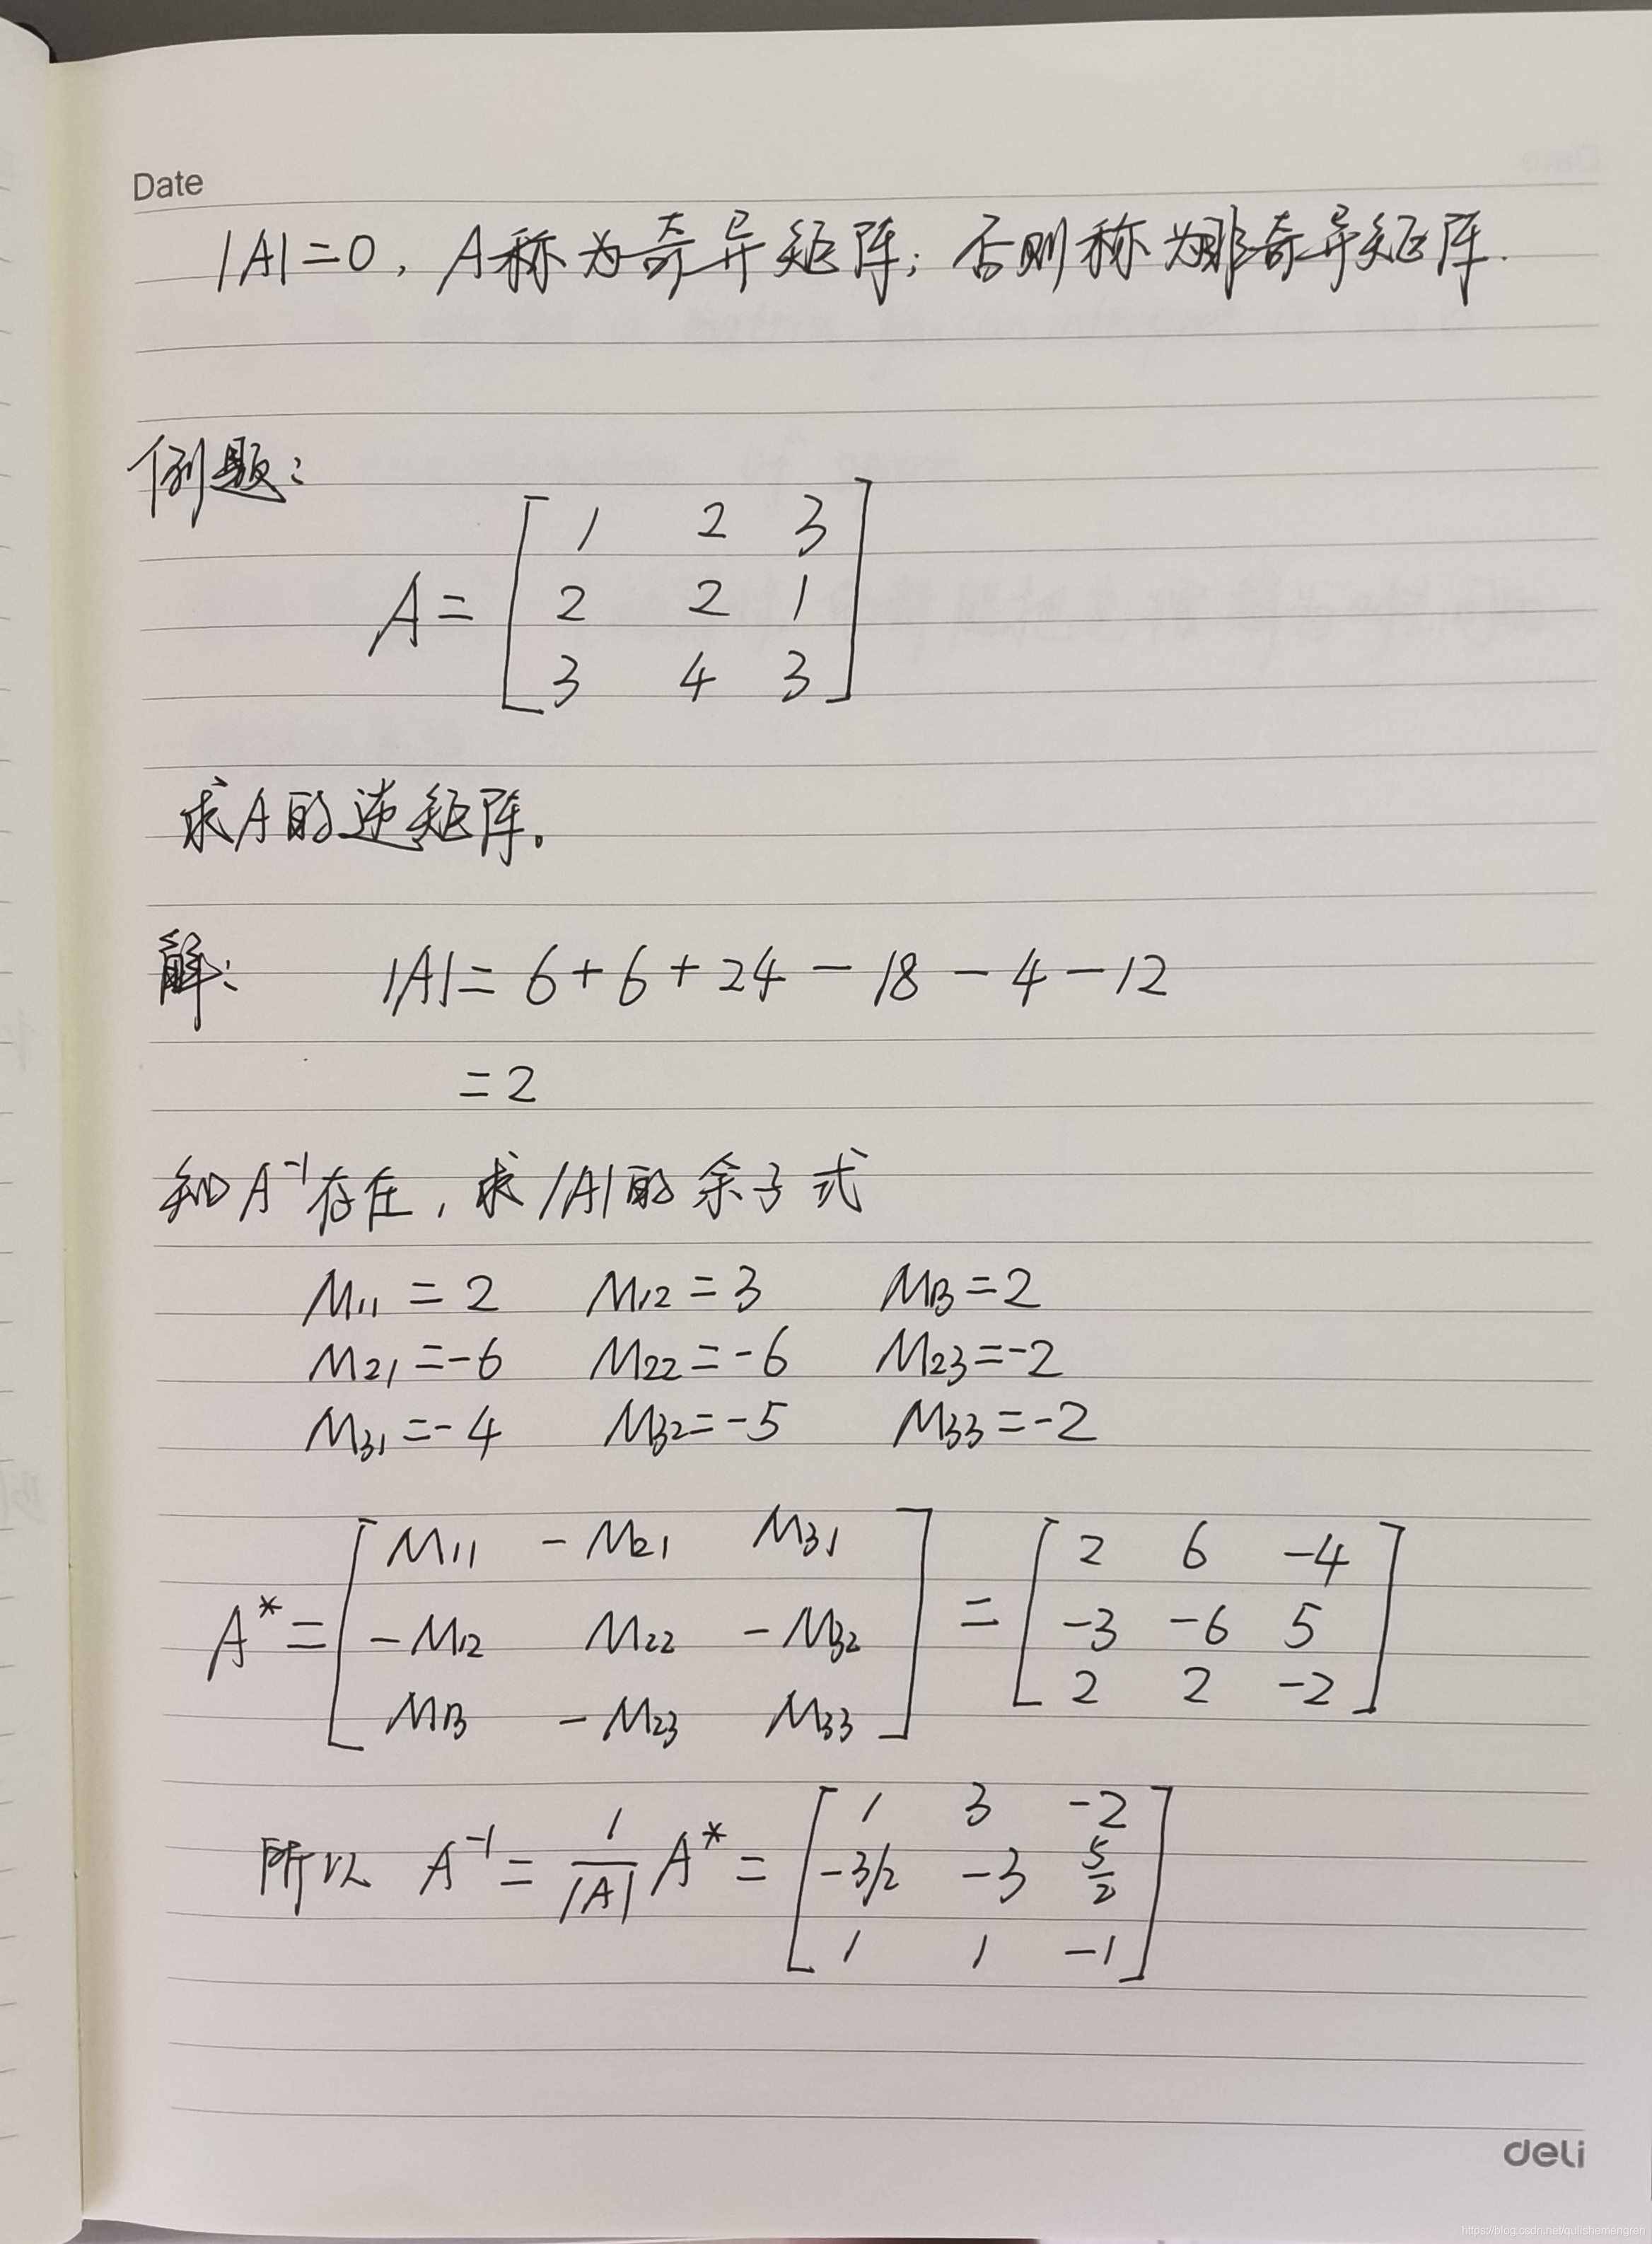 Date
|A|=0, A称为奇异矩阵; 否则称为非奇异矩阵.
例题:
A= [ 1 2 3
2 2 1
3 4 3 ]
求A的逆矩阵。
解: |A|= 6+6+24-18-4-12
=2
知A⁻¹存在, 求|A|的余子式
M11=2 M12=3 M13=2
M21=-6 M22=-6 M23=-2
M31=-4 M32=-5 M33=-2
A*= [ M11 -M21 M31
-M12 M22 -M32
M13 -M23 M33 ] = [ 2 6 -4
-3 -6 5
2 2 -2 ]
所以 A⁻¹ = 1/|A| A* = [ 1 3 -2
-3/2 -3 5/2
1 1 -1 ]
deli
https://blog.csdn.net/qulishemengren